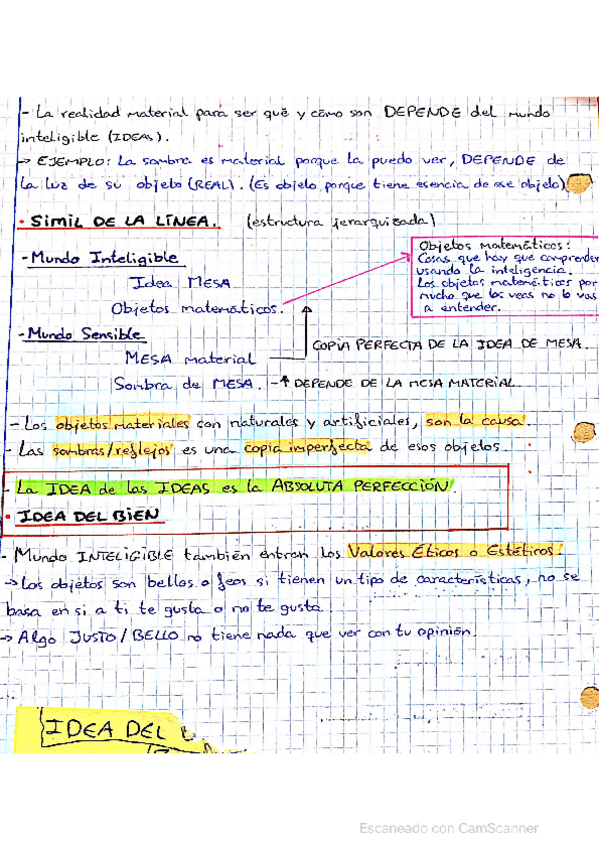 - La realidad material para ser qué y cómo son DEPENDE del mundo
inteligible (IDEAS).
→ EJEMPLO: La sombra es material porque la puedo ver, DEPENDE de
la luz de su objeto (REAL). (Es objeto porque tiene esencia de ese objeto)
· SIMIL DE LA LÍNEA. (estructura jerarquizada)
- Mundo Inteligible
Idea MESA
Objetos matemáticos.
Objetos matemáticos:
Cosas que hay que comprender
usando la inteligencia.
Los objetos matemáticos por
mucho que los veas no lo vas
a entender.
- Mundo Sensible
MESA material
COPIA PERFECTA DE LA IDEA DE MESA.
Sombra de MESA. - ↑ DEPENDE DE LA MESA MATERIAL
- Los objetos materiales son naturales y artificiales, son la causa.
- Las sombras/reflejos es una copia imperfecta de esos objetos.
- La IDEA de las IDEAS es la ABSOLUTA PERFECCIÓN.
· IDEA DEL BIEN
- Mundo INTELIGIBLE también entran los Valores Éticos o Estéticos.
→ Los objetos son bellos o feos si tienen un tipo de características, no se
basa en si a ti te gusta o no te gusta.
→ Algo JUSTO/BELLO no tiene nada que ver con tu opinión.
IDEA DEL
Escaneado con CamScanner